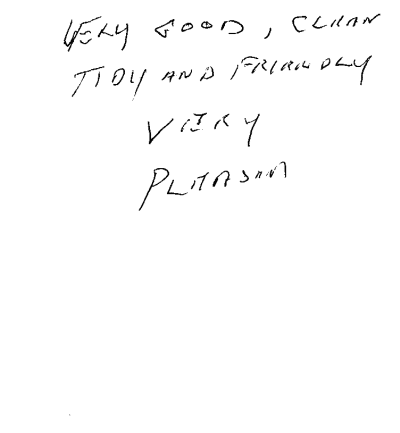 VERY GOOD, CLEAN
TIDY AND FRIENDLY
VERY
PLEASANT